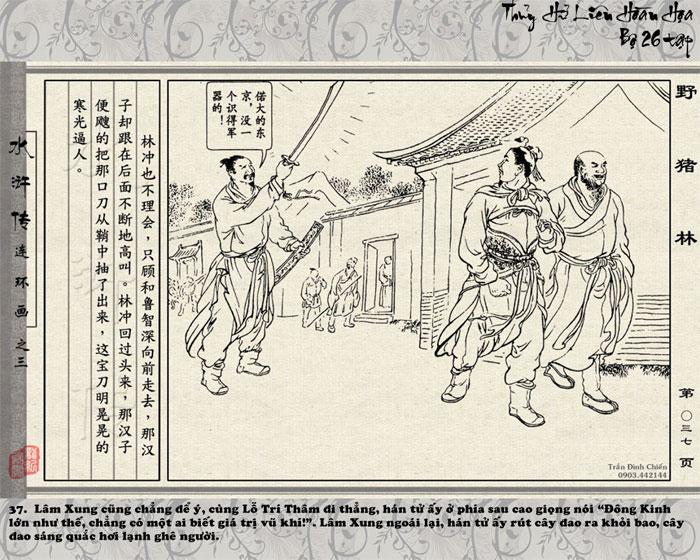 Thủy Hử Liên Hoàn Họa
Bộ 26 tập
野猪林
偌大的东
京，没一
个识得军
器的！
林冲也不理会，只顾和鲁智深向前走去，那汉
子却跟在后面不断地高叫。林冲回过头来，那汉子
便飕的把那口刀从鞘中抽了出来，这宝刀明晃晃的
寒光逼人。
水浒传连环画之三
第〇三七页
Trần Đình Chiến
0903.442144
37. Lâm Xung cũng chẳng để ý, cùng Lỗ Trí Thâm đi thẳng, hán tử ấy ở phía sau cao giọng nói “Đông Kinh
lớn như thế, chẳng có một ai biết giá trị vũ khí!”. Lâm Xung ngoái lại, hán tử ấy rút cây đao ra khỏi bao, cây
đao sáng quắc hơi lạnh ghê người.